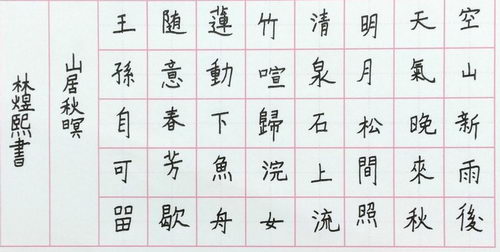 空山新雨後
天氣晚來秋
明月松間照
清泉石上流
竹喧歸浣女
蓮動下魚舟
随意春芳歇
王孫自可留
山居秋暝
林煜熙書